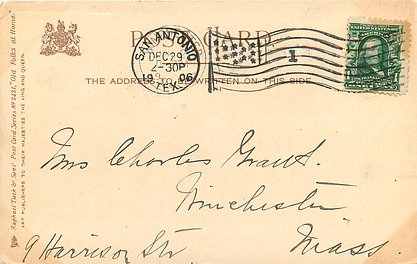 POST CARD
SAN ANTONIO
DEC 29
2-30P
1906
TEX.
1
THE ADDRESS TO BE WRITTEN ON THIS SIDE
Raphael Tuck & Sons' Post Card Series No 2421, "Old Folks at Home."
ART PUBLISHERS TO THEIR MAJESTIES THE KING AND QUEEN.
Mrs Charles Grant.
Winchester
9 Harrison Str
Mass.